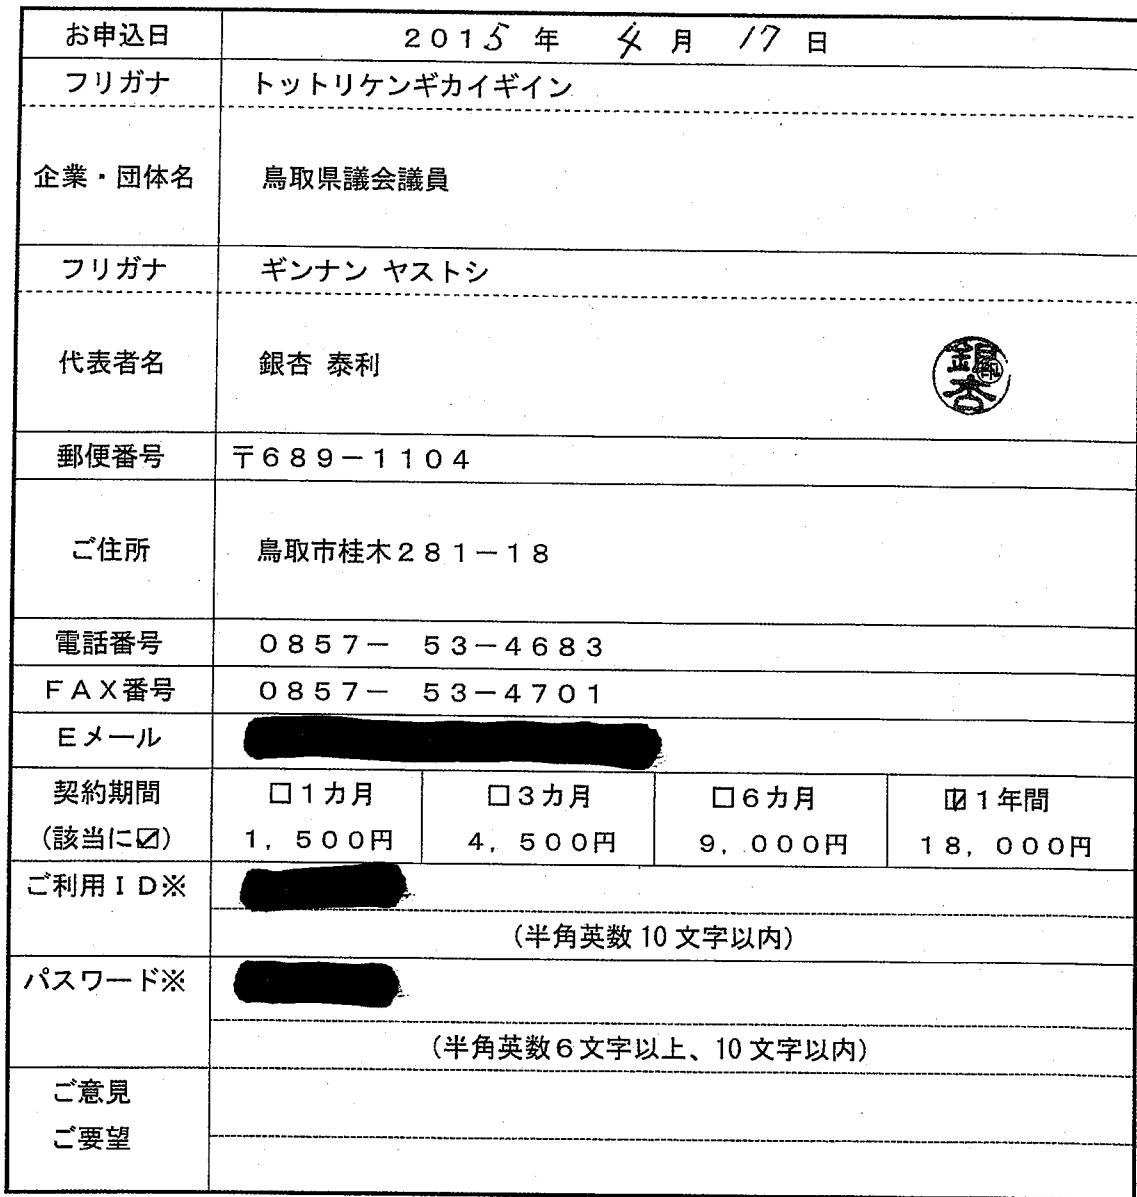 お申込日 2015年 4月 17日
フリガナ トットリケンギカイギイン
企業・団体名 鳥取県議会議員
フリガナ ギンナン ヤストシ
代表者名 銀杏 泰利 銀杏 印
郵便番号 〒689-1104
ご住所 鳥取市桂木281-18
電話番号 0857- 53-4683
FAX番号 0857- 53-4701
Eメール
契約期間 □1カ月 □3カ月 □6カ月 ☑1年間
(該当に☑) 1,500円 4,500円 9,000円 18,000円
ご利用ID※
(半角英数10文字以内)
パスワード※
(半角英数6文字以上、10文字以内)
ご意見
ご要望